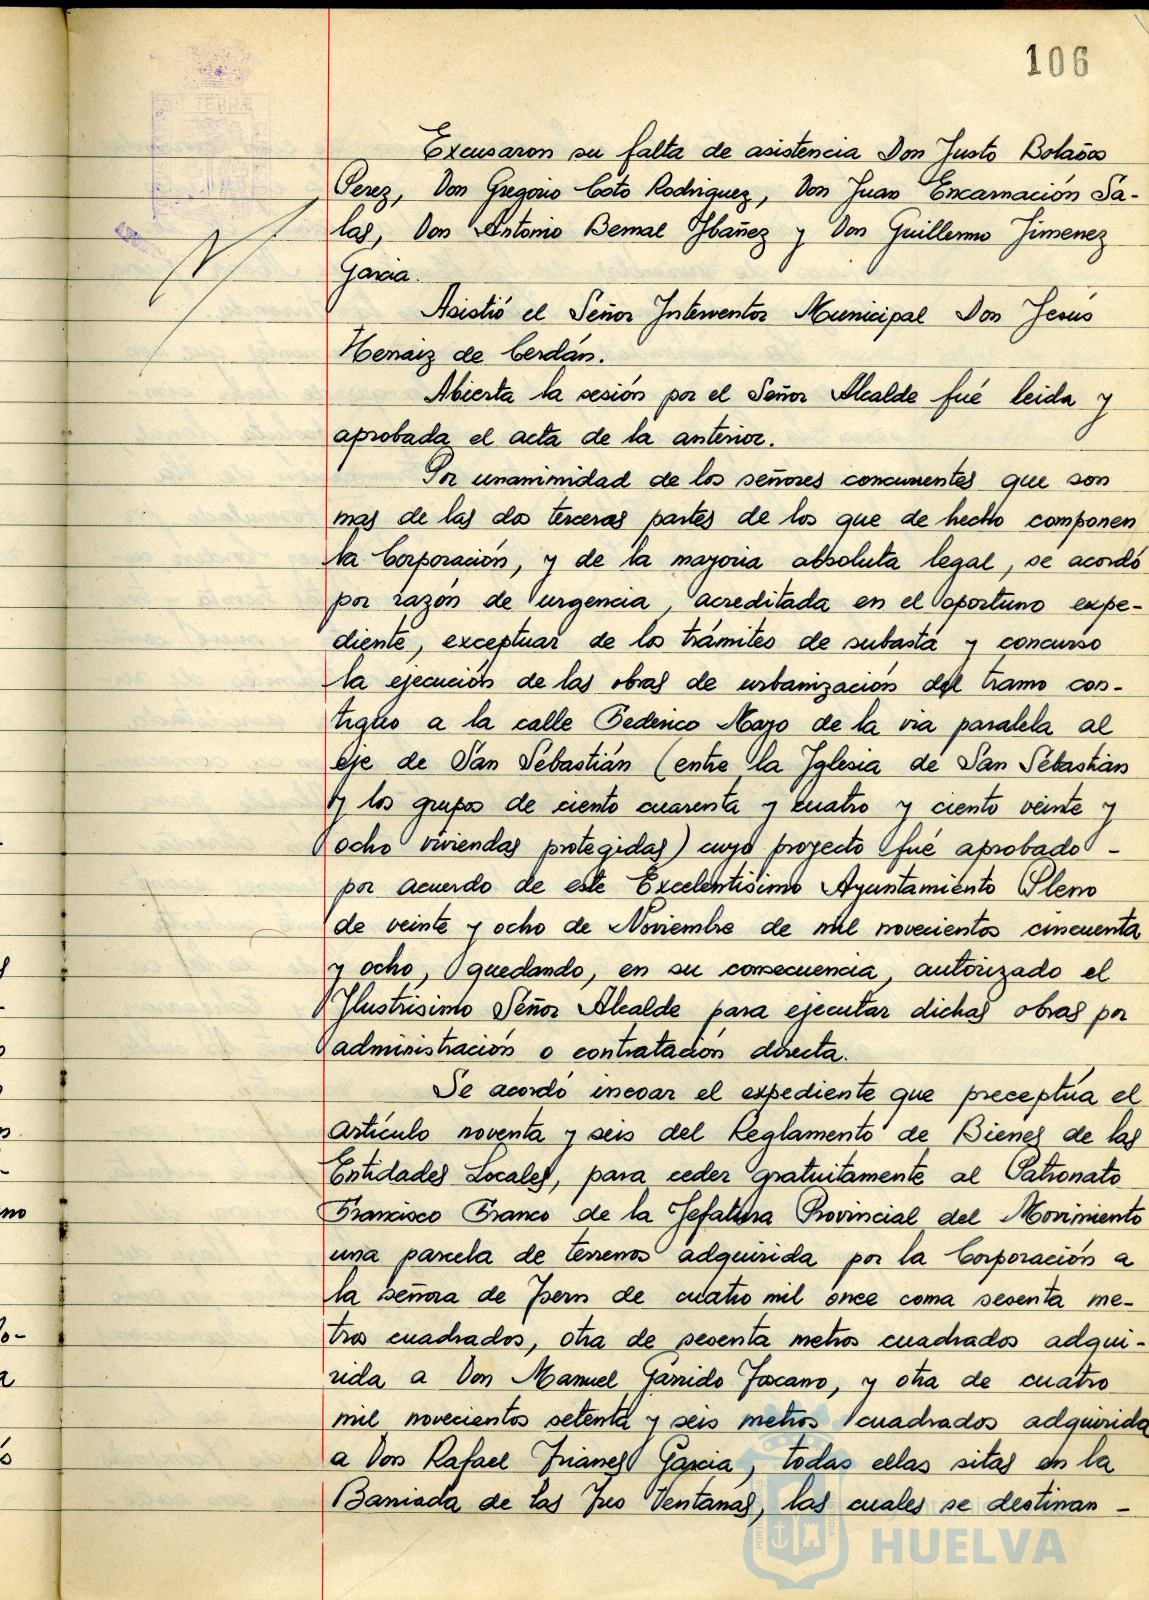 106
Excusaron su falta de asistencia Don Justo Bolaños
Perez, Don Gregorio Coto Rodriguez, Don Juan Encarnación Sa-
las, Don Antonio Bernal Ybañez y Don Guillermo Jimenez
Garcia.
Asistió el Señor Interventor Municipal Don Jesús
Hernaiz de Cerdán.
Abierta la sesión por el Señor Alcalde fué leida y
aprobada el acta de la anterior.
Por unanimidad de los señores concurrentes que son
mas de las dos terceras partes de los que de hecho componen
la Corporación, y de la mayoria absoluta legal, se acordó
por razón de urgencia, acreditada en el oportuno expe-
diente, exceptuar de los trámites de subasta y concurso
la ejecución de las obras de urbanización del tramo con-
tiguo a la calle Federico Mayo de la via paralela al
eje de San Sebastián (entre la Iglesia de San Sebastián
y los grupos de ciento cuarenta y cuatro y ciento veinte y
ocho viviendas protegidas) cuyo proyecto fué aprobado -
por acuerdo de este Excelentisimo Ayuntamiento Pleno
de veinte y ocho de Noviembre de mil novecientos cincuenta
y ocho, quedando, en su consecuencia, autorizado el
Ilustrisimo Señor Alcalde para ejecutar dichas obras por
administración o contratación directa.
Se acordó incoar el expediente que preceptúa el
artículo noventa y seis del Reglamento de Bienes de las
Entidades Locales, para ceder gratuitamente al Patronato
Francisco Franco de la Jefatura Provincial del Movimiento
una parcela de terrenos adquirida por la Corporación a
la señora de Isern de cuatro mil once coma sesenta me-
tros cuadrados, otra de sesenta metros cuadrados adqui-
rida a Don Manuel Garrido Toscano, y otra de cuatro
mil novecientos setenta y seis metros cuadrados adquirida
a Don Rafael Trianes Garcia, todas ellas sitas en la
Barriada de las Tres Ventanas, las cuales se destinan -
HUELVA